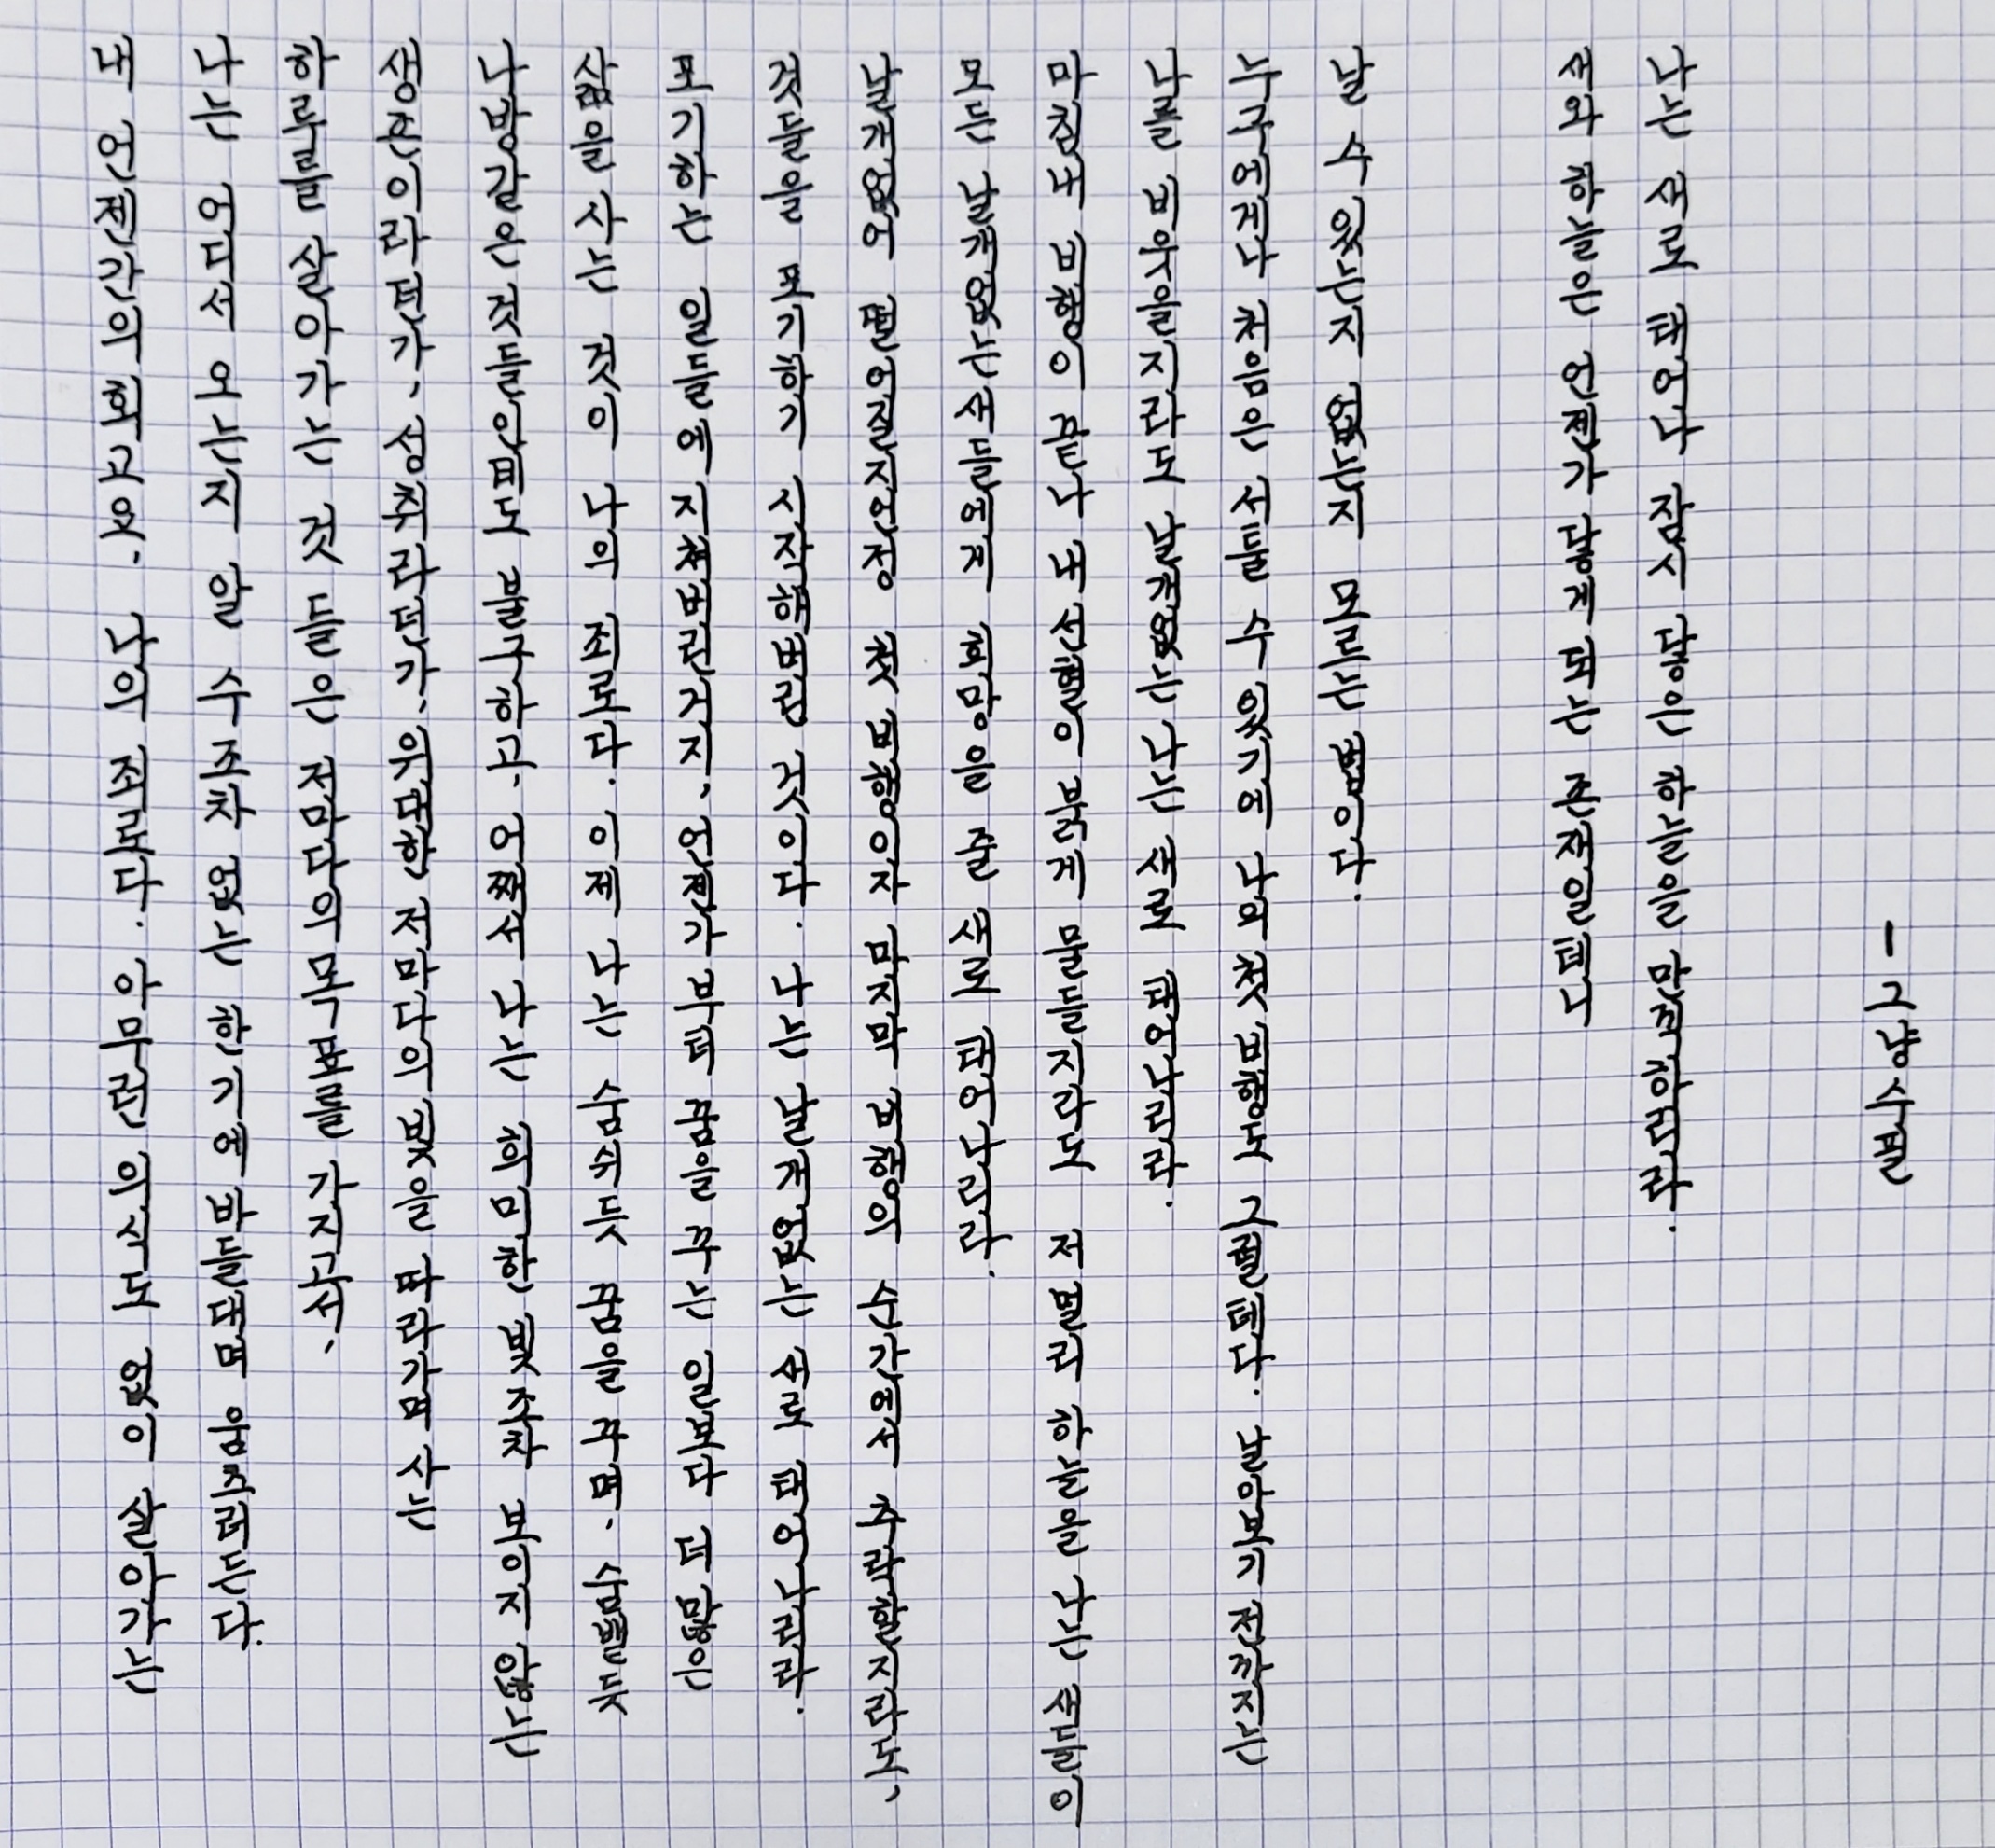 내 언젠가의 회고요, 나의 죄로다. 아무런 의심도 없이 살아가는
나는 어디서 오는지 알 수조차 없는 한기에 바들대며 움츠려든다.
하루를 살아가는 것 들은 저마다의 목표를 가지고서,
생존이라던가, 성취라던가, 위대한 저마다의 빛을 따라가며 사는
나방같은 것들임에도 불구하고, 어째서 나는 희미한 빛조차 보이지 않는
삶을 사는 것이 나의 죄로다. 이제 나는 숨쉬듯 꿈을 꾸며, 숨뱉듯
포기하는 일들에 지쳐버린거지, 언젠가부터 꿈을 꾸는 일보다 더 많은
것들을 포기하기 시작해버린 것이다. 나는 날개없는 새로 태어나리라.
날개없이 떨어질지언정 첫 비행이자 마지막 비행의 순간에서 추락할지라도,
모든 날개없는새들에게 희망을 줄 새로 태어나리라.
마침내 비행이 끝나 내 선혈이 붉게 물들지라도 저 멀리 하늘을 나는 새들이
나를 비웃을지라도 날개없는 나는 새로 태어나리라.
누구에게나 처음은 서툴 수 있기에 나의 첫 비행도 그럴테다. 날아보기 전까지는
날 수 있는지 없는지 모르는 법이다.
새와 하늘은 언젠가 닿게 되는 존재일테니
나는 새로 태어나 잠시 닿은 하늘을 만끽하리라.
- 그냥 수필